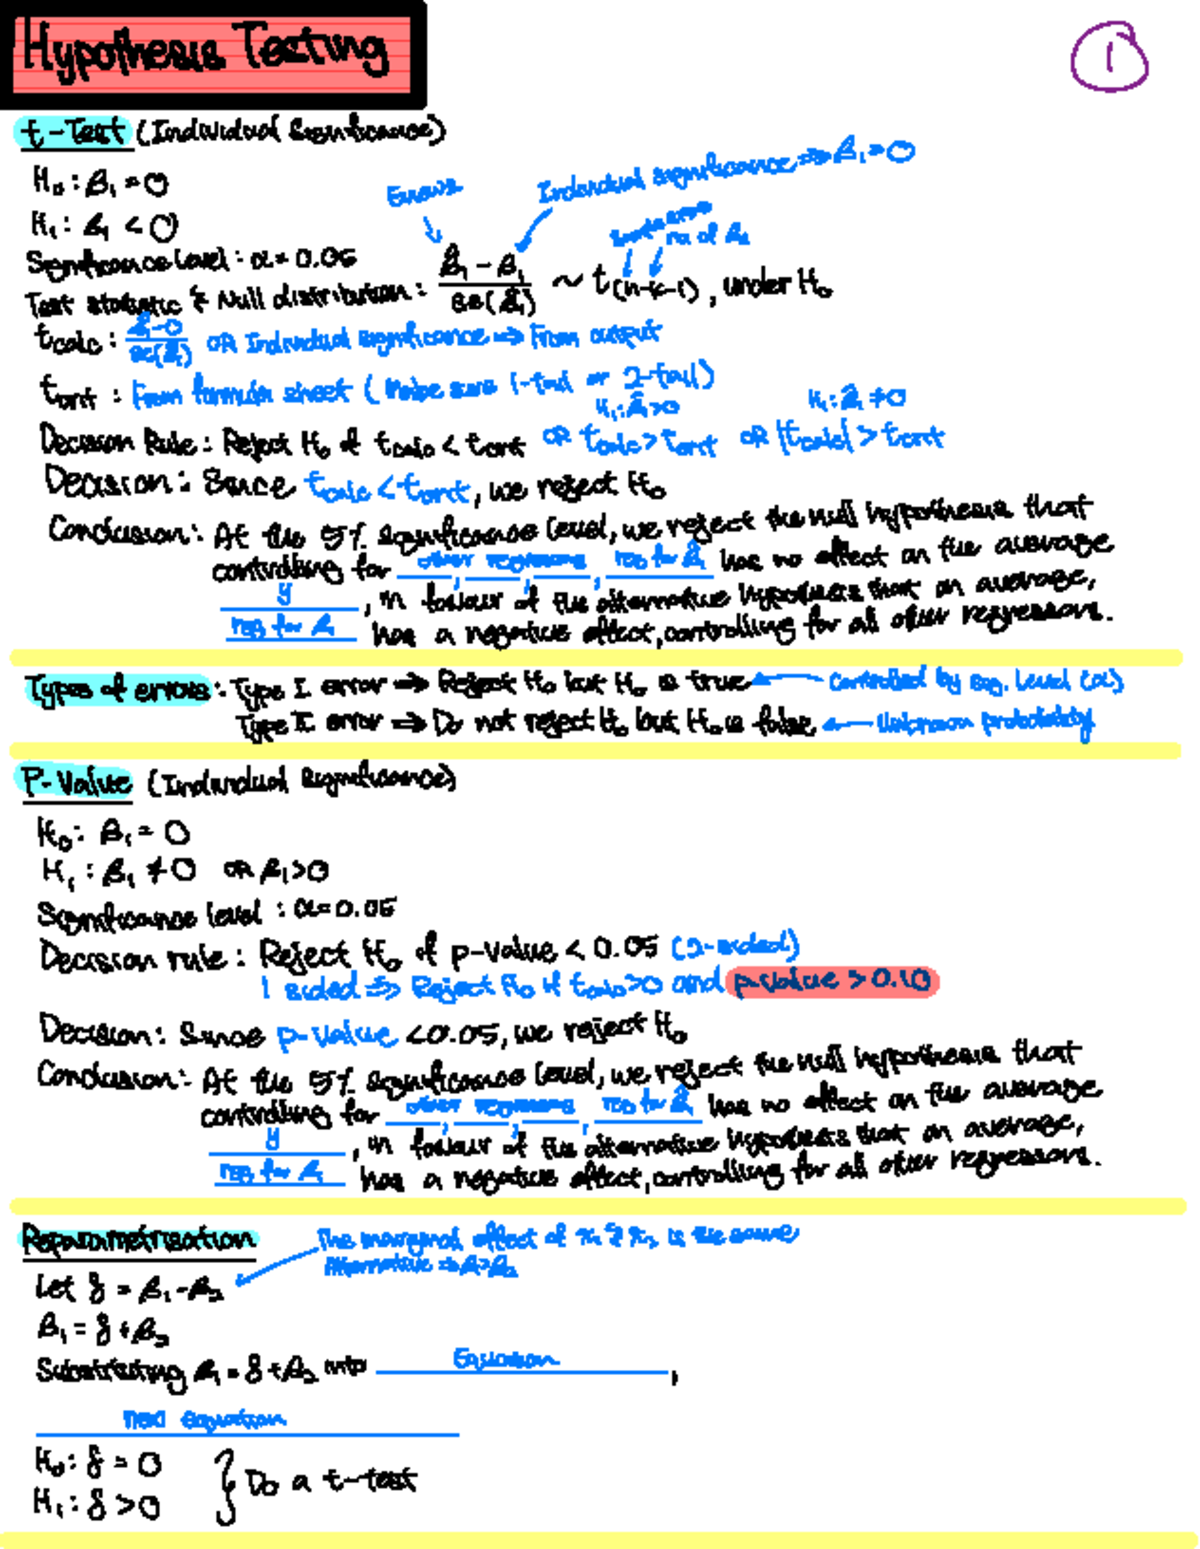 Hypothesis Testing
1
t-Test (Individual Significance)
H₀: β₁ = 0
Individual significance ⇒ β₁ = 0
H₁: β₁ < 0
no of βs
Significance level: α = 0.05
Test statistic & Null distribution: β̂₁ - β₁ / se(β̂₁) ~ t(n-k-1), under H₀
tcalc: β̂₁-0 / se(β̂₁) OR Individual significance ⇒ From output
tcrit: From formula sheet (Make sure 1-tail or 2-tail)
H₁: β₁ > 0 H₁: β₁ ≠ 0
Decision Rule: Reject H₀ if tcalc < tcrit OR tcalc > tcrit OR |tcalc| > tcrit
Decision: Since tcalc < tcrit, we reject H₀
Conclusion: At the 5% significance level, we reject the null hypothesis that
controlling for other regressors, , , reg for β̂₁ has no effect on the average
y, in favour of the alternative hypothesis that on average,
reg for β₁ has a negative effect, controlling for all other regressors.
Types of errors: Type I error ⇒ Reject H₀ but H₀ is true ← Controlled by sig. level (α)
Type II error ⇒ Do not reject H₀ but H₀ is false ← Unknown probability
P-Value (Individual Significance)
H₀: β₁ = 0
H₁: β₁ ≠ 0 OR β₁ > 0
Significance level: α = 0.05
Decision rule: Reject H₀ if p-value < 0.05 (2-sided)
1 sided ⇒ Reject H₀ if tcalc > 0 and p-value > 0.10
Decision: Since p-value < 0.05, we reject H₀
Conclusion: At the 5% significance level, we reject the null hypothesis that
controlling for other regressors, , , reg for β̂₁ has no effect on the average
y, in favour of the alternative hypothesis that on average,
reg for β₁ has a negative effect, controlling for all other regressors.
Reparametrisation
The marginal effect of x₁ & x₂ is the same
Alternative ⇒ β₁ > β₂
Let δ = β₁ - β₂
β₁ = δ + β₂
Substituting β₁ = δ + β₂ into Equation,
new equation
H₀: δ = 0
H₁: δ > 0
} Do a t-test